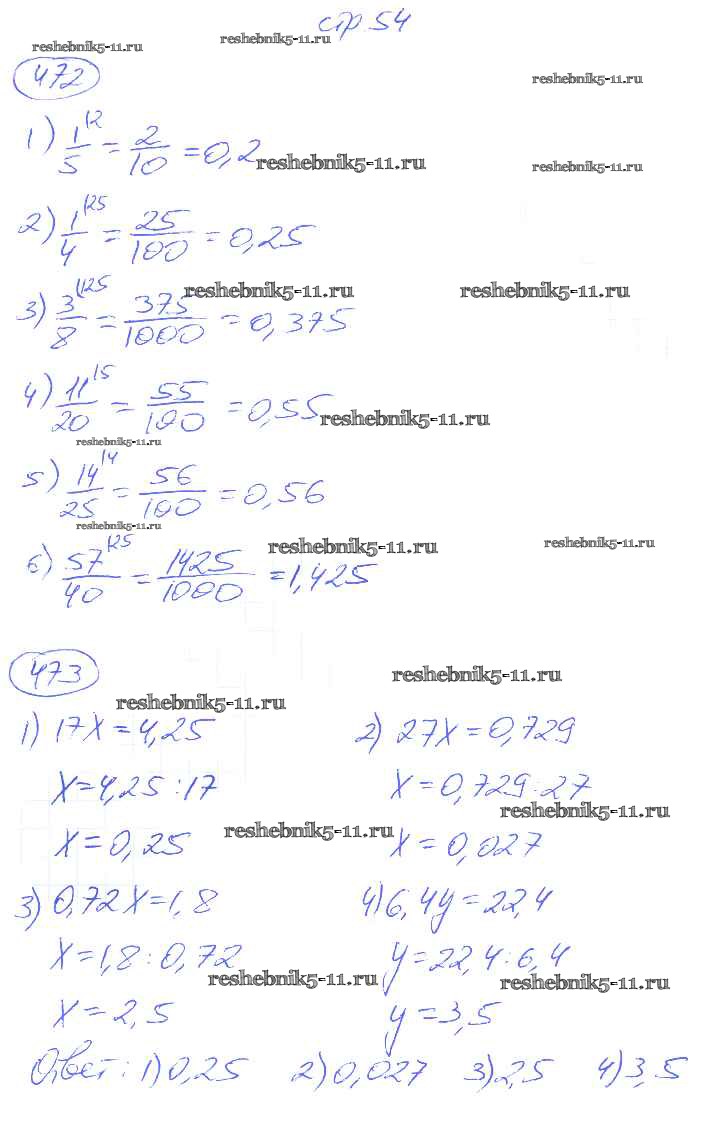 стр 54
reshebnik5-11.ru reshebnik5-11.ru
472 reshebnik5-11.ru
1) 1/5 |2 = 2/10 = 0,2 reshebnik5-11.ru reshebnik5-11.ru
2) 1/4 |25 = 25/100 = 0,25
reshebnik5-11.ru reshebnik5-11.ru
3) 3/8 |125 = 375/1000 = 0,375
4) 11/20 |5 = 55/100 = 0,55 reshebnik5-11.ru
reshebnik5-11.ru
5) 14/25 |4 = 56/100 = 0,56
reshebnik5-11.ru
reshebnik5-11.ru reshebnik5-11.ru
6) 57/40 |25 = 1425/1000 = 1,425
473 reshebnik5-11.ru
reshebnik5-11.ru
1) 17x=4,25 2) 27x=0,729
x=4,25:17 x=0,729:27
reshebnik5-11.ru
x=0,25 reshebnik5-11.ru x=0,027
3) 0,72x=1,8 4) 6,4y=22,4
x=1,8:0,72 y=22,4:6,4
reshebnik5-11.ru reshebnik5-11.ru
x=2,5 y=3,5
Ответ: 1) 0,25 2) 0,027 3) 2,5 4) 3,5